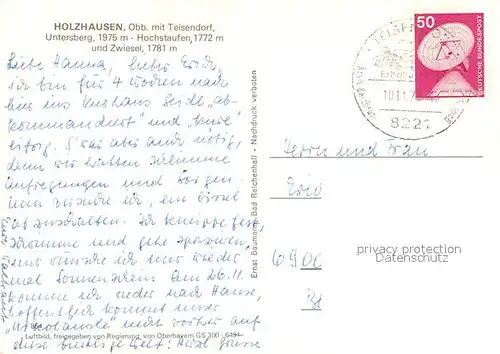 HOLZHAUSEN, Obb. mit Teisendorf,
Untersberg, 1975 m - Hochstaufen, 1772 m
und Zwiesel, 1781 m
Liebe Hanna, lieber Erich,
ich bin für 4 Wochen nach
hier ins Kurhaus Seidl „ab-
kommandiert" und „kure"
eifrig. Es war aber auch nötig,
denn wir hatten schlimme
Aufregungen und Sorgen.
Nun versuche ich, ein bissel
abzuschalten. Ich kneippe fest,
schwimme und gehe spazieren,
uns wünsche ich nur wieder
mal Sonnenschein. Am 26.11.
komme ich wieder nach Hause,
hoffentlich kommt unser
nicht vorher auf
diese Welt! Herzl. Grüsse
Eure
Luftbild, freigegeben von Regierung von Oberbayern GS 300
Ernst Baumann, Bad Reichenhall - Nachdruck verboten
50
DEUTSCHE BUNDESPOST
8221
Herrn und Frau
Eric
6900
privacy protection
Datenschutz